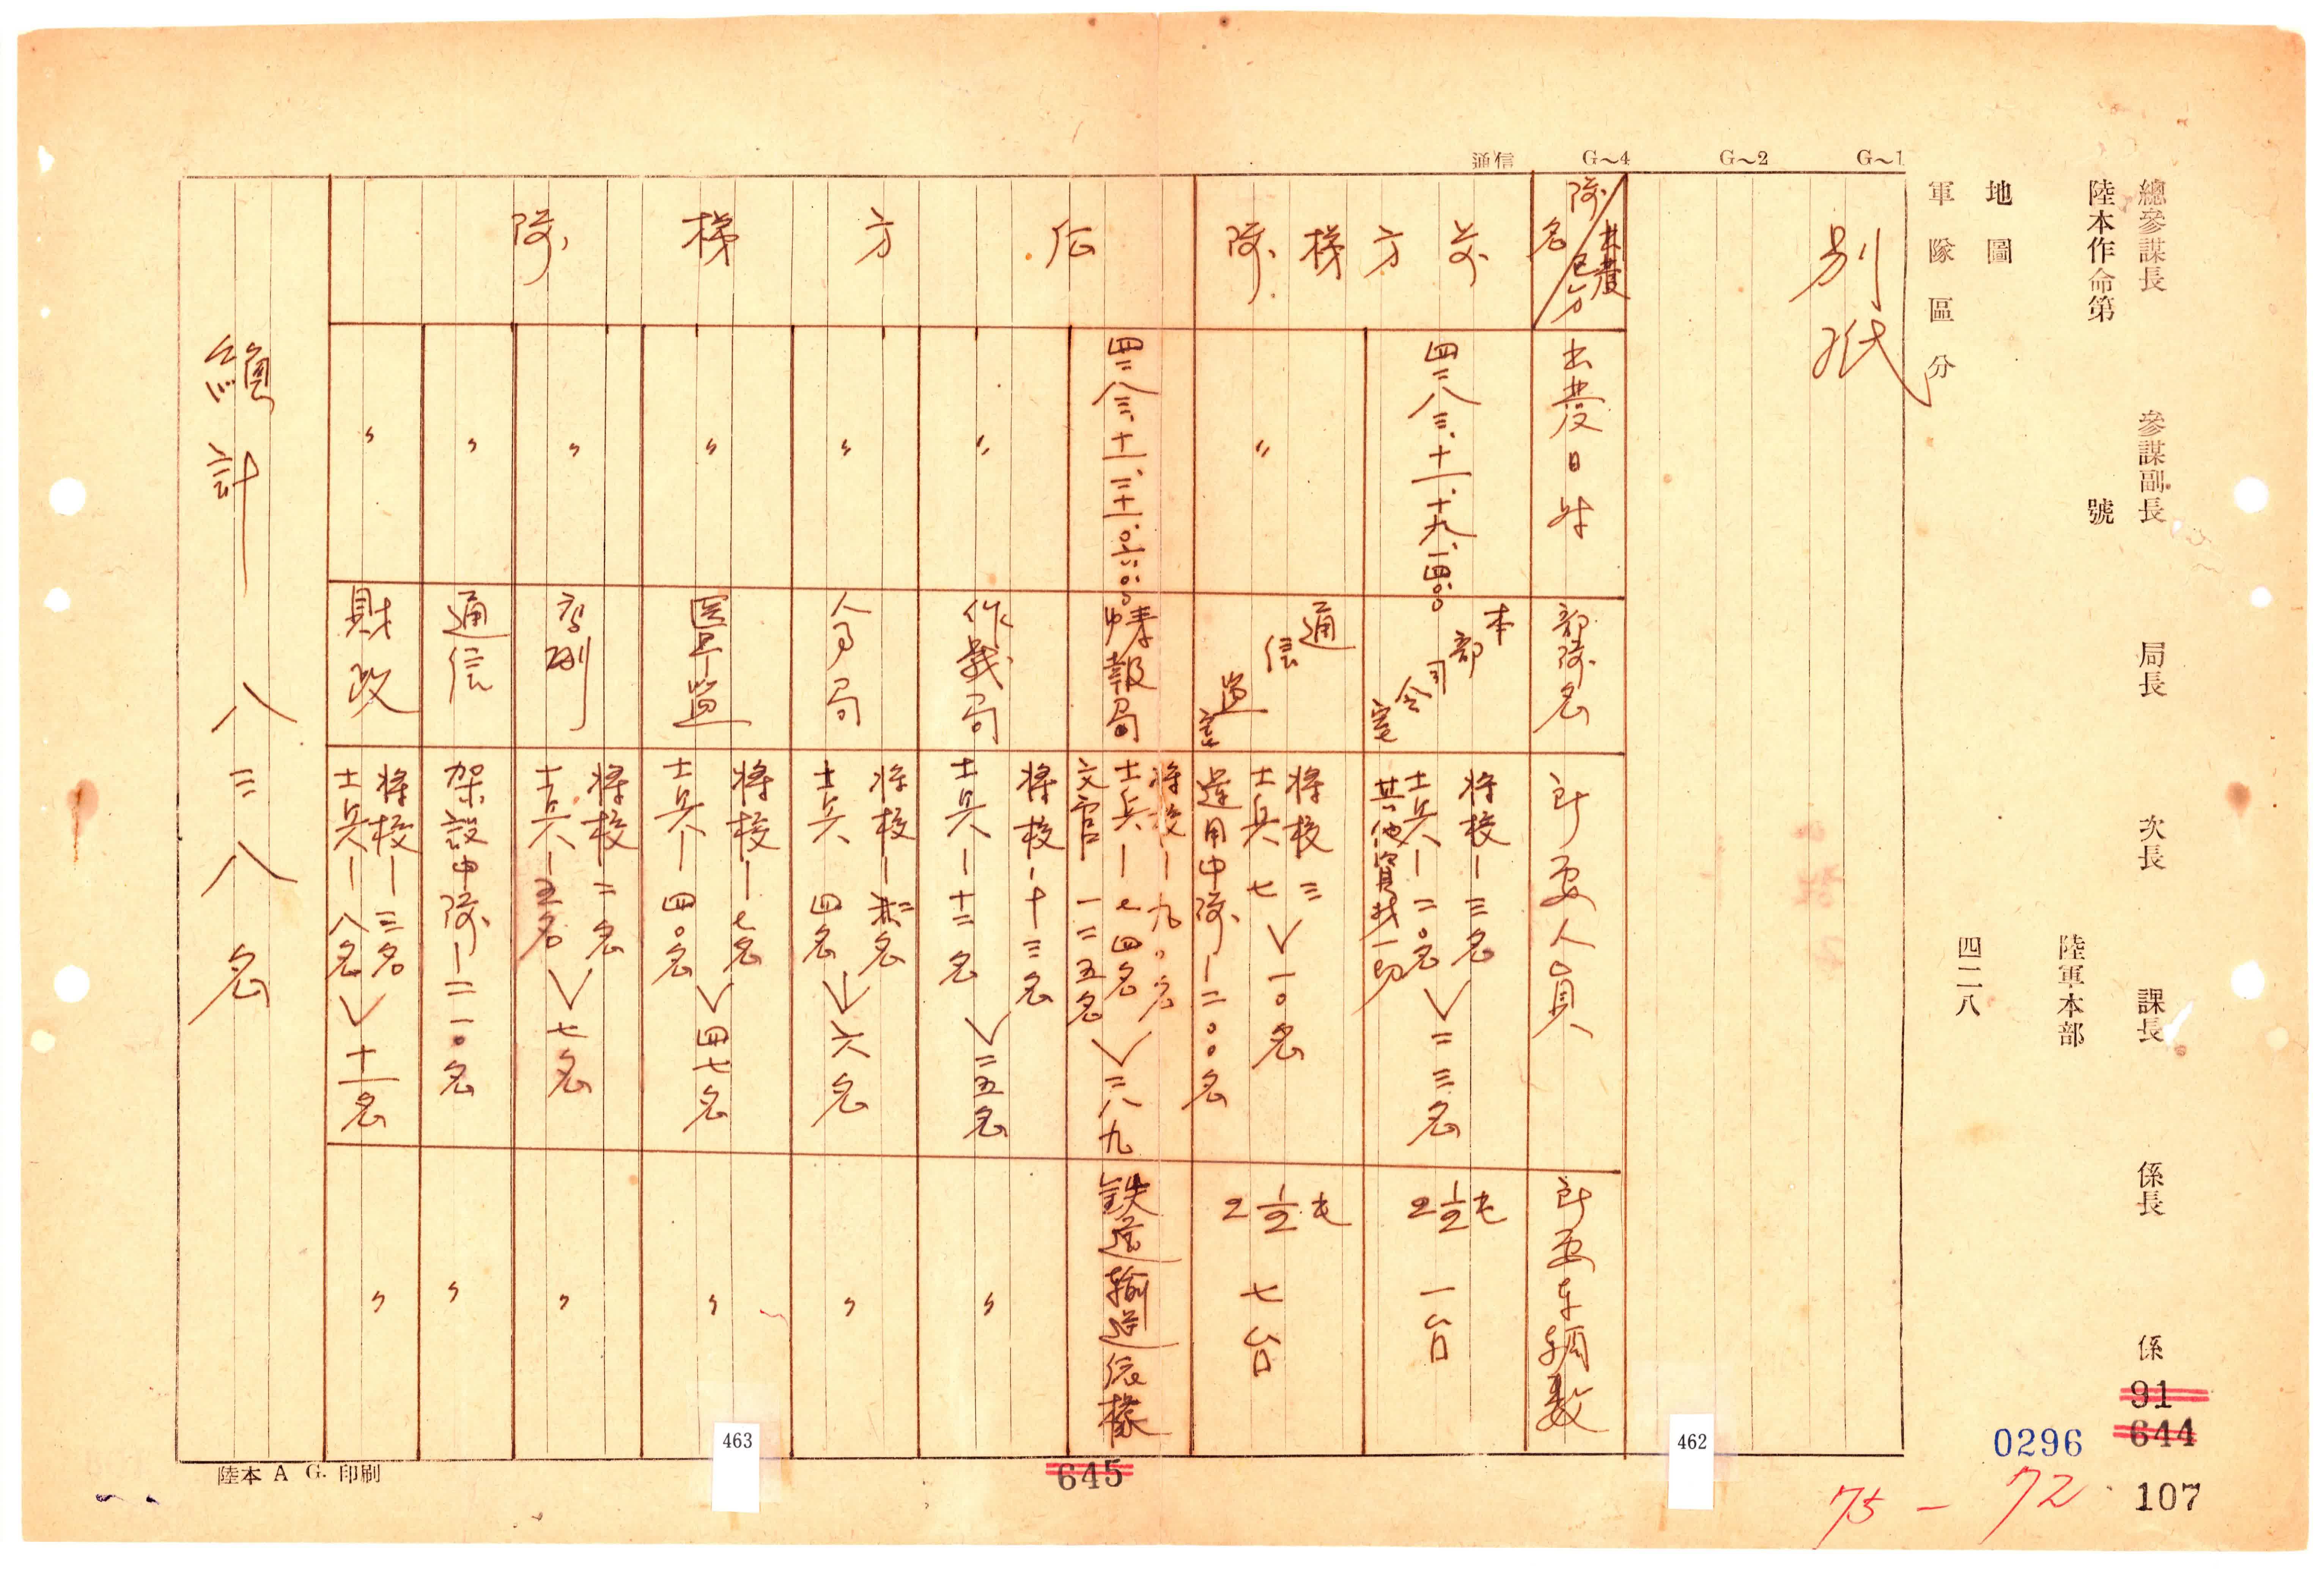 總參謀長 參謀副長 局長 次長 課長 係長 係
陸本作命第 號
陸軍本部
地圖
四二八
軍隊區分
G~1
G~2
G~4
通信
別紙
隊名
出發區分
出發日時
部隊名
所要人員
所要車輛数
前方梯隊
四二八三、十一、十九、一四:〇〇
本部司令室
將校-三名
士兵-二〇名
其他資材一切
二三名
2 1/2屯 一台
〃
通信監室
將校 三
士兵 七
一〇名
運用中隊-二〇〇名
2 1/2屯 七台
后方梯隊
四二八三、十一、二十、〇六:〇〇
情報局
將校-九〇名
士兵-七四名
文官 一二五名
二八九
鉄道輸送依據
〃
作戰局
將校-十三名
士兵-十二名
二五名
〃
〃
人事局
將校-二名
士兵 四名
六名
〃
〃
医務監
將校-七名
士兵-四〇名
四七名
〃
〃
將校-二名
士兵-五名
七名
〃
〃
通信
架設中隊-二一〇名
〃
〃
財政
將校-三名
士兵-八名
十一名
〃
總計 八三八名
陸本 A G. 印刷
463
645
462
91
644
0296
107
75 - 72